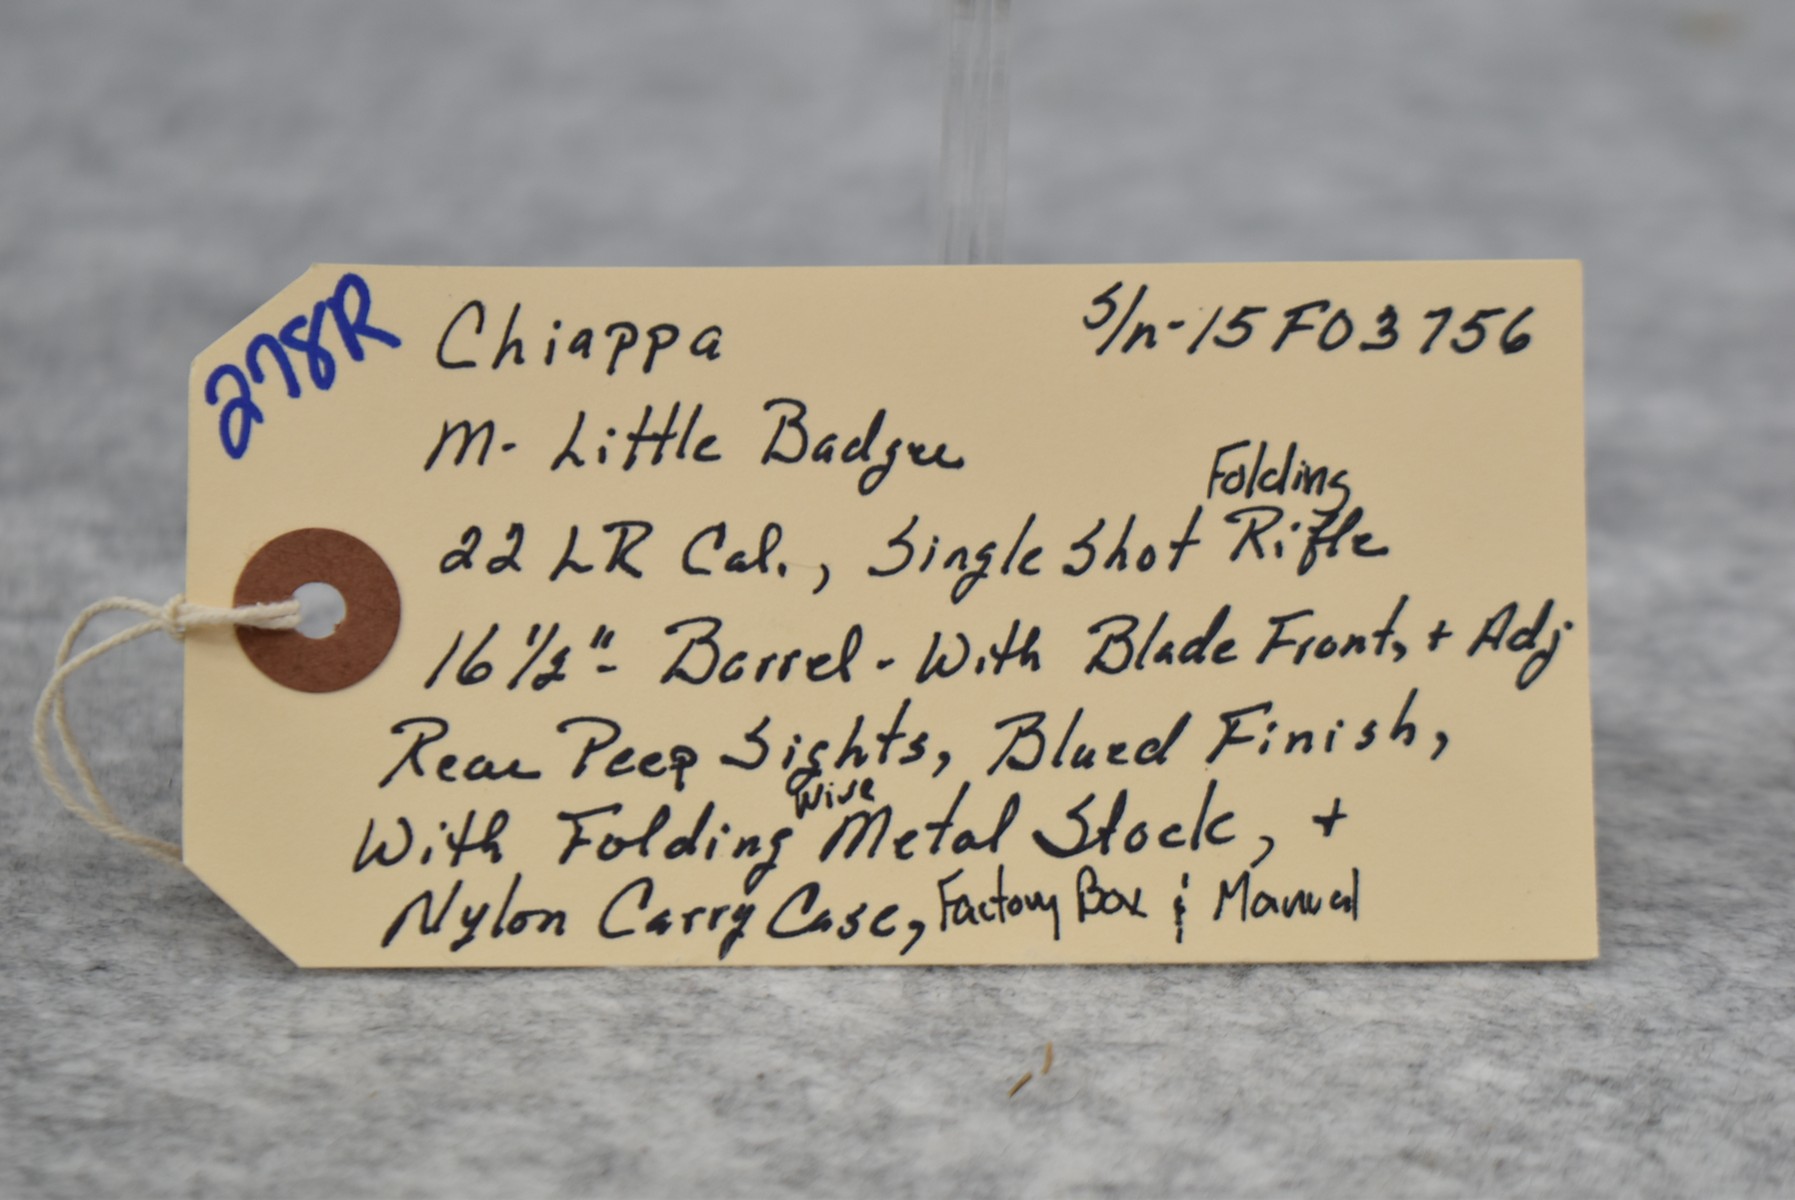 278R
Chiappa S/n-15F03756
M- Little Badger
22 LR Cal., Single Shot Folding Rifle
16 1/2"- Barrel - With Blade Front, + Adj
Rear Peep Sights, Blued Finish,
With Folding Wire Metal Stock, +
Nylon Carry Case, Factory Box & Manual